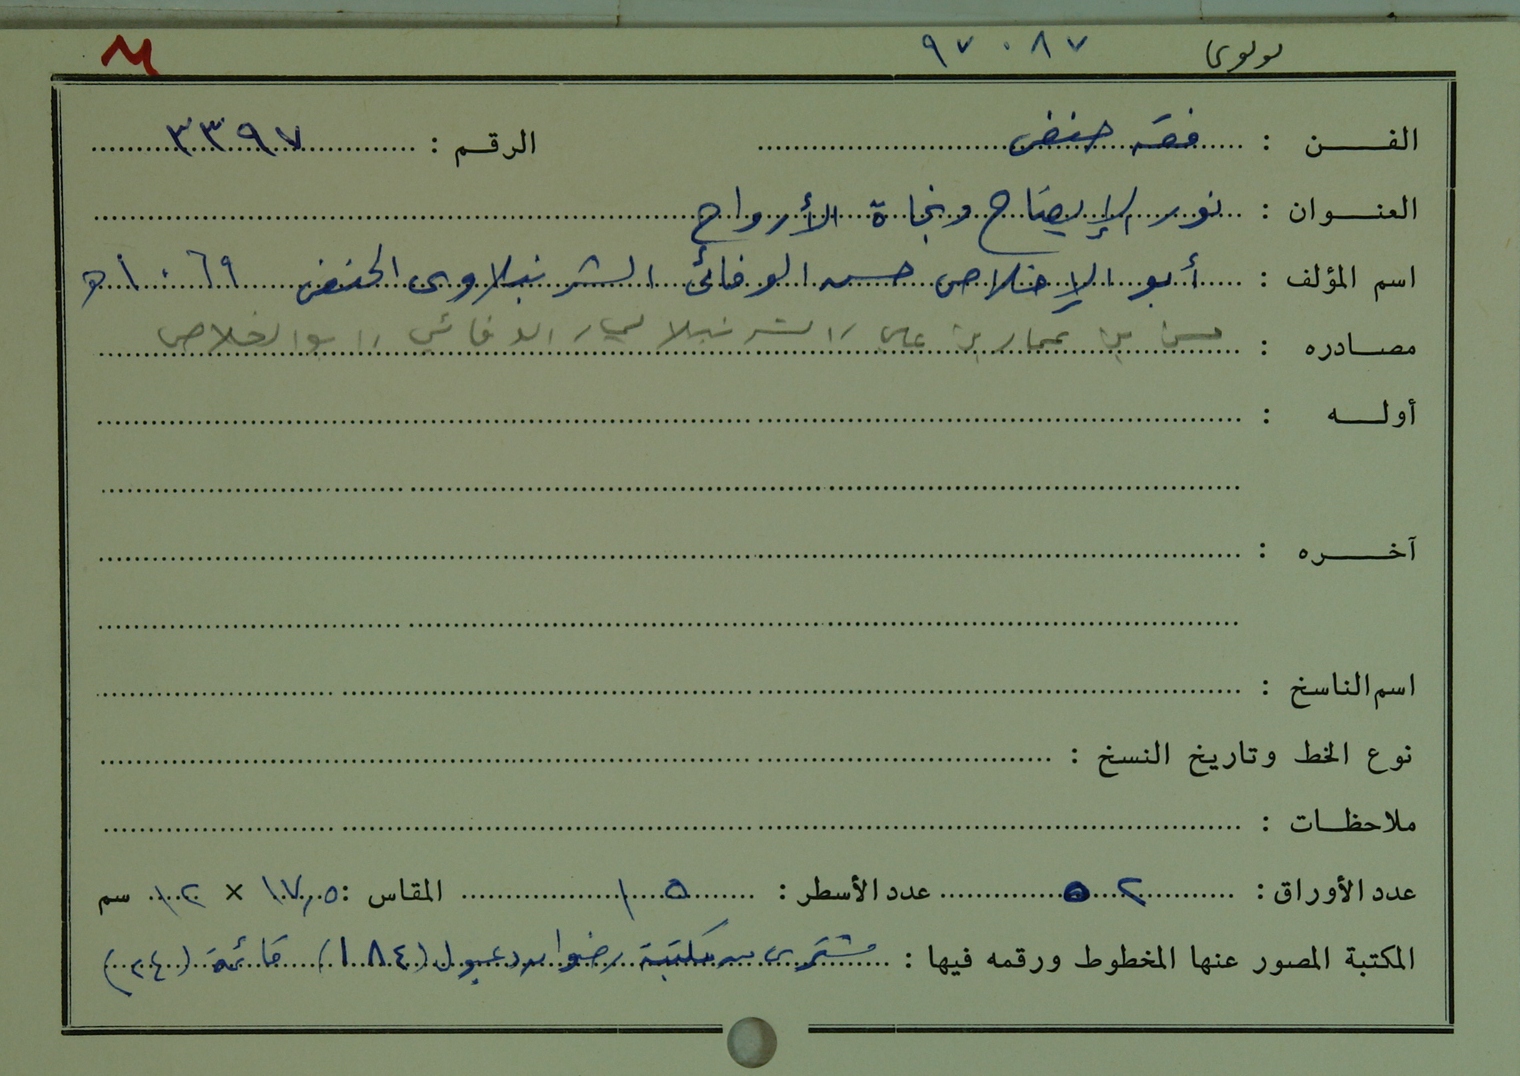 ٩٧٠٨٧
الفن : فقه حنفى الرقم : ٣٣٩٧
العنوان : نور الإيضاح ونجاة الأرواح
اسم المؤلف : أبو الإخلاص حسن الوفائى الشرنبلاوى الحنفى ١٠٦٩ هـ
مصادره : حسن بن عمار بن علي الشرنبلالي الوفائي ابو الخلاص
أوله :
آخره :
اسم الناسخ :
نوع الخط وتاريخ النسخ :
ملاحظات :
عدد الأوراق : ٥٢ عدد الأسطر : ١٥ المقاس : ١٧,٥ × ١٢ سم
المكتبة المصور عنها المخطوط ورقمه فيها : مشترى من مكتبة رضوان دعبول (١٨٤) قائمة (٢٤)